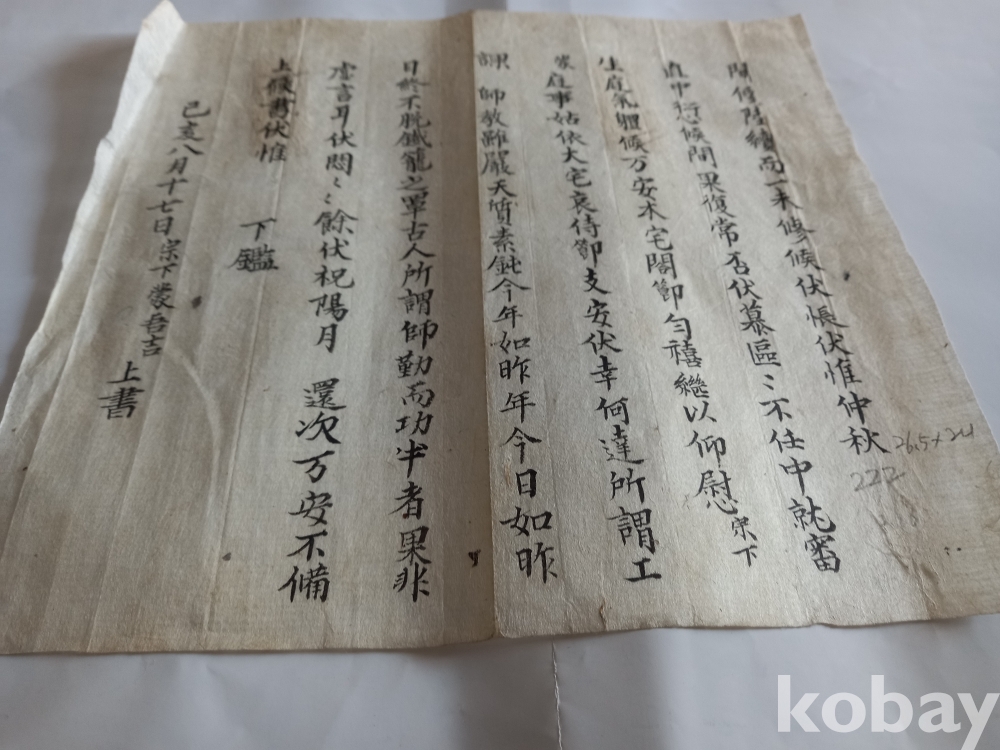 閒仍陸續而一未修候伏悵伏惟仲秋
直中行候間果復常否伏慕區〻不任中就審
生庭氣體候万安本宅閤節匀禧繼以仰慰宗下
家庭事姑依大宅哀侍節支安伏幸何達所謂工
課師敎雖嚴天質素鈍今年如昨年今日如昨
日終不脫鐵籠之罩古人所謂師勤而功半者果非
虛言耳伏悶〻餘伏祝陽月 還次万安不備
上候書伏惟
下鑑
己亥八月十七日宗下裵吾吉
上書
26.5×24
222
kobay